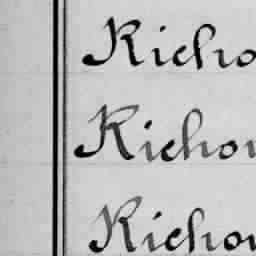 Richo
Richon
Richon